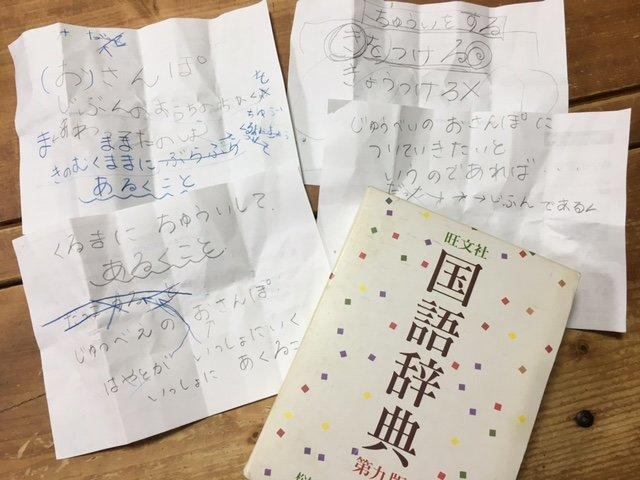 (お)さんぽ
じぶんの
きのむくままに ぶらぶら
あるくこと
ちゅういをする
きをつける◎
きょうつける×
じゅうべいの おさんぽに
ついていきたいと
いうのであれば・・・
じぶんであるく
くるまに ちゅういして、
あるくこと
じゅうべえの おさんぽ
はやとが いっしょにいく
いっしょに あくるこ
旺文社
国語辞典
第九版